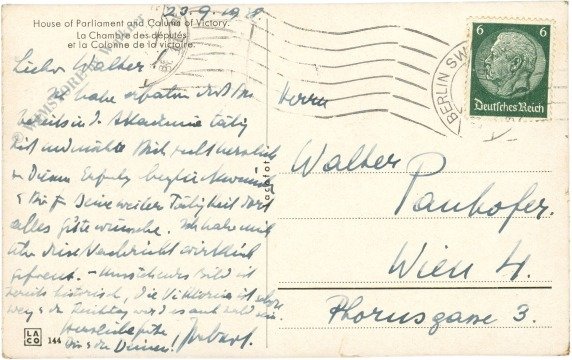 23.9.1938.
House of Parliament and Column of Victory.
La Chambre des députés
et la Colonne de la victoire.
Lieber Walter!
Ich habe erfahren, daß Du
bereits in d. Akademie tätig
bist und möchte Dich recht herzlich
zu Diesem Erfolg beglückwünschen
u. Dir f. Deine weitere Tätigkeit dort
alles gute wünsche. Ich habe mich
über diese Nachricht wirklich
gefreut. – Umseitiges Bild ist
bereits historisch, die Viktoria ist schon
weg u. der Reichstag wird es auch bald sein.
Herzliche Grüße
Dir u. den Deinen!
LACO 144
BERLIN SW
6 6
Deutsches Reich
Herrn
Walter
Panhofer.
Wien 4.
Phorusgasse 3.